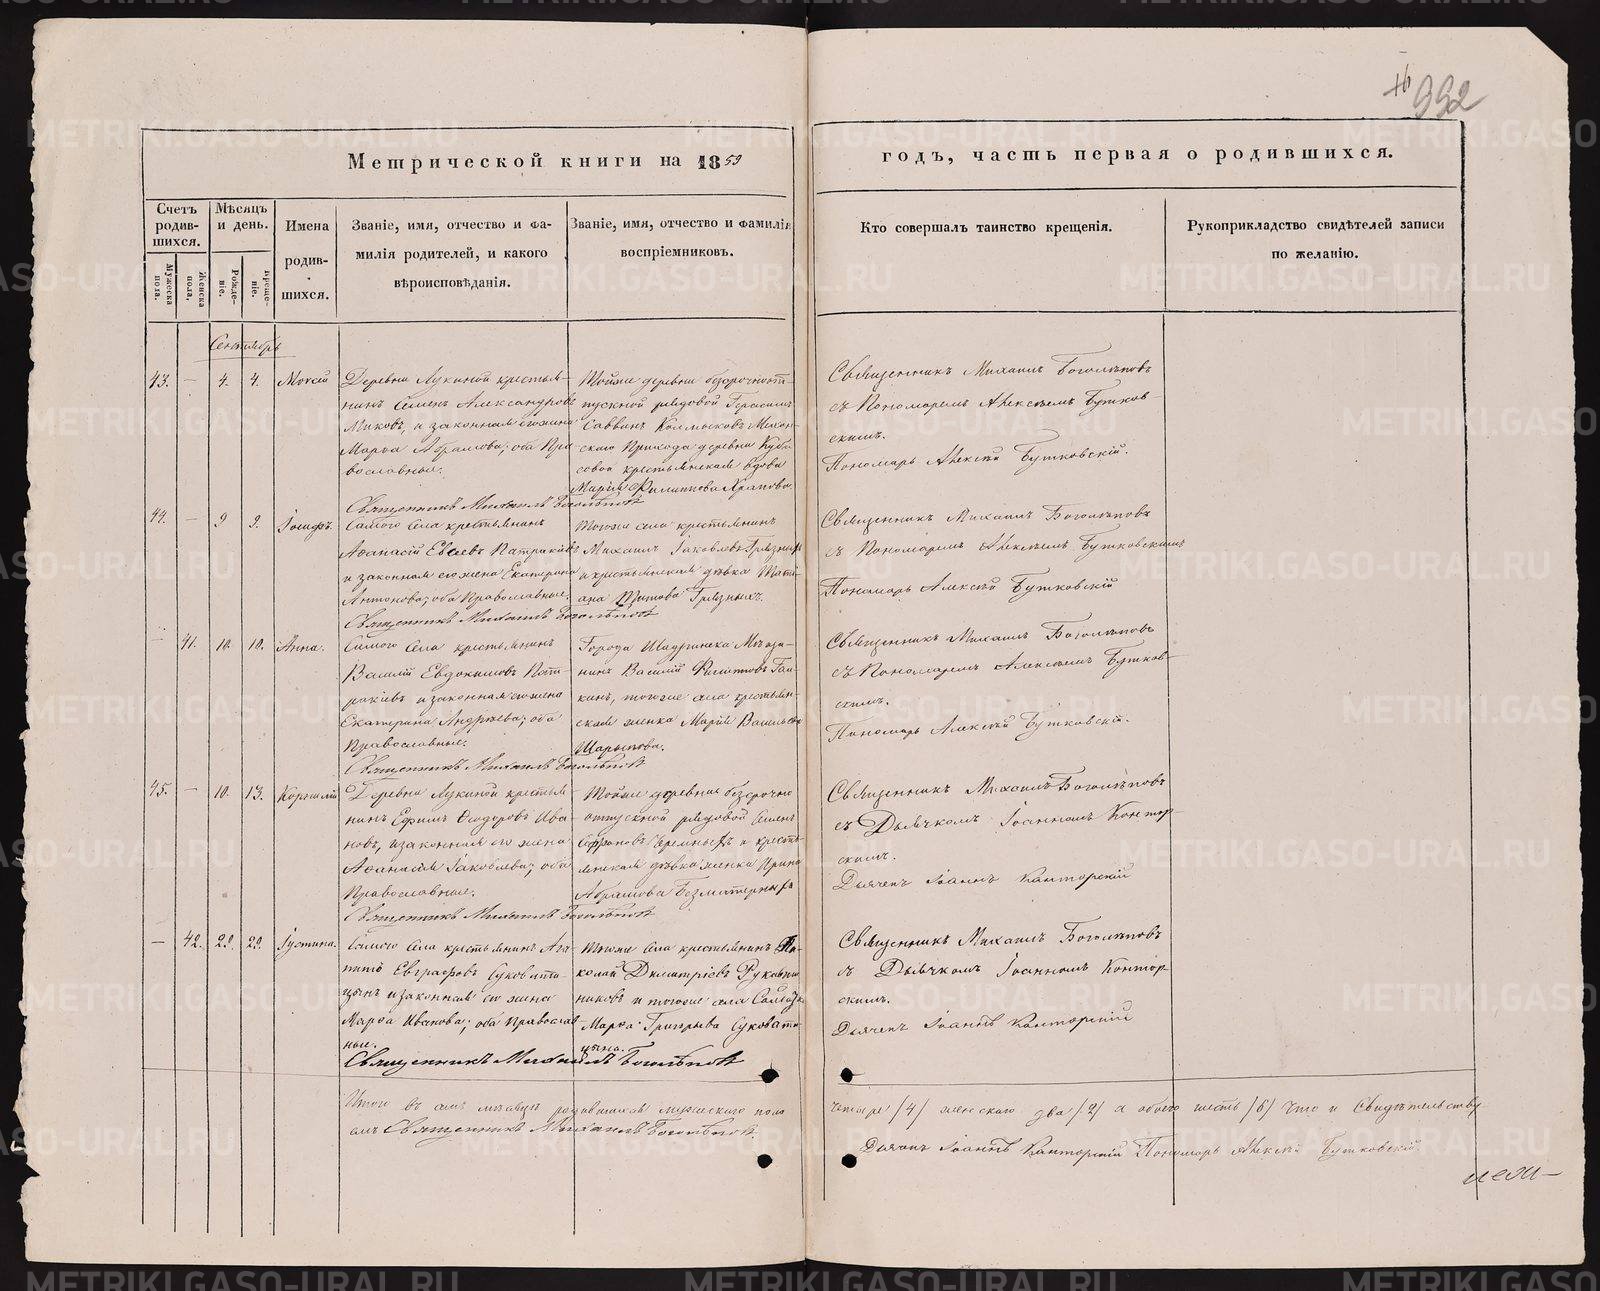 992
Метрической книги на 1859
годъ, часть первая о родившихся.
Счетъ родив-шихся.
Мужеска пола.
Женска пола.
Мѣсяцъ и день.
Рожде-ніе.
Креще-ніе.
Имена
родив-
шихся.
Званіе, имя, отчество и фа-
милія родителей, и какого
вѣроисповѣданія.
Званіе, имя, отчество и фамилія
воспріемниковъ.
Кто совершалъ таинство крещенія.
Рукоприкладство свидѣтелей записи
по желанію.
Сентябрь
43. — 4. 4. Моѵсей
Деревни Лукиной крестья-
нинъ Семенъ Александровъ
и законная его жена
Марѳа Абрамова; оба Пра-
вославные.
Тойже деревни безсрочноот-
пускной рядовой Герасимъ
Саввинъ Колмыковъ
Прихода деревни
совой крестьянская вдова
Марія Филиппова
Священникъ Михаилъ Боголѣповъ
съ Пономаремъ Алексѣемъ Бутков-
скимъ.
Пономарь Алексѣй Бутковскій.
Священникъ Михаилъ Боголѣповъ
44. — 9 9. Іосифъ.
Самого села крестьянинъ
Аѳанасій Патракѣевъ
и законная его жена Екатерина
Антонова; оба Православные.
Тогоже села крестьянинъ
Михаилъ Іаковлевъ Грязныхъ
и крестьянская дѣвка Тати-
ана Титова Грязныхъ.
Священникъ Михаилъ Боголѣповъ
съ Пономаремъ Алексѣемъ Бутковскимъ
Пономарь Алексѣй Бутковскій
Священникъ Михаилъ Боголѣповъ
— 41. 10. 10. Анна.
Самого села крестьянинъ
Василій Евдокимовъ Пат-
ракѣевъ и законная его жена
Екатерина Андреева; оба
Православные.
Города Шадринска Мѣща-
нинъ Василій Филиповъ
тогоже села крестьян-
ская женка Марія Васильева
Шарыпова.
Священникъ Михаилъ Боголѣповъ
съ Пономаремъ Алексѣемъ Бутков-
скимъ.
Пономарь Алексѣй Бутковскій.
Священникъ Михаилъ Боголѣповъ
45. — 10. 13. Корнилій
Деревни Лукиной крестья-
нинъ Ефимъ Ѳеодоровъ Ива-
новъ, и законная его жена
Аѳанасія Іаковлева; оба
Православные.
Тойже деревни безсрочно
отпускной рядовой Семенъ
Черемныхъ и кресть-
янская женка Ирина
Абрамова Безматерныхъ
Священникъ Михаилъ Боголѣповъ
съ Дьячкомъ Іоанномъ Контор-
скимъ.
Дьячекъ Іоаннъ Канторскій
Священникъ Михаилъ Боголѣповъ
— 42. 22. 22. Іустина.
Самого села крестьянинъ Ага-
питъ Евграфовъ Суковати-
цынъ и законная его жена
Марѳа Иванова; оба Православ-
ные.
Тогоже села крестьянинъ Ни-
колай Димитріевъ Рукавиш-
никовъ и тогоже села
Марѳа Григорьева Суковати-
цына.
Священникъ Михаилъ Боголѣповъ
съ Дьячкомъ Іоанномъ Контор-
скимъ.
Дьячекъ Іоаннъ Канторскій
Священникъ Михаилъ Боголѣповъ
Итого въ семъ мѣсяцѣ родившихся мужескаго пола
четыре /4/ женскаго два /2/ а обоего шесть /6/ что и свидѣтельству-
емъ Священникъ Михаилъ Боголѣповъ.
Дьячекъ Іоаннъ Канторскій Пономарь Алексѣй Бутковскій